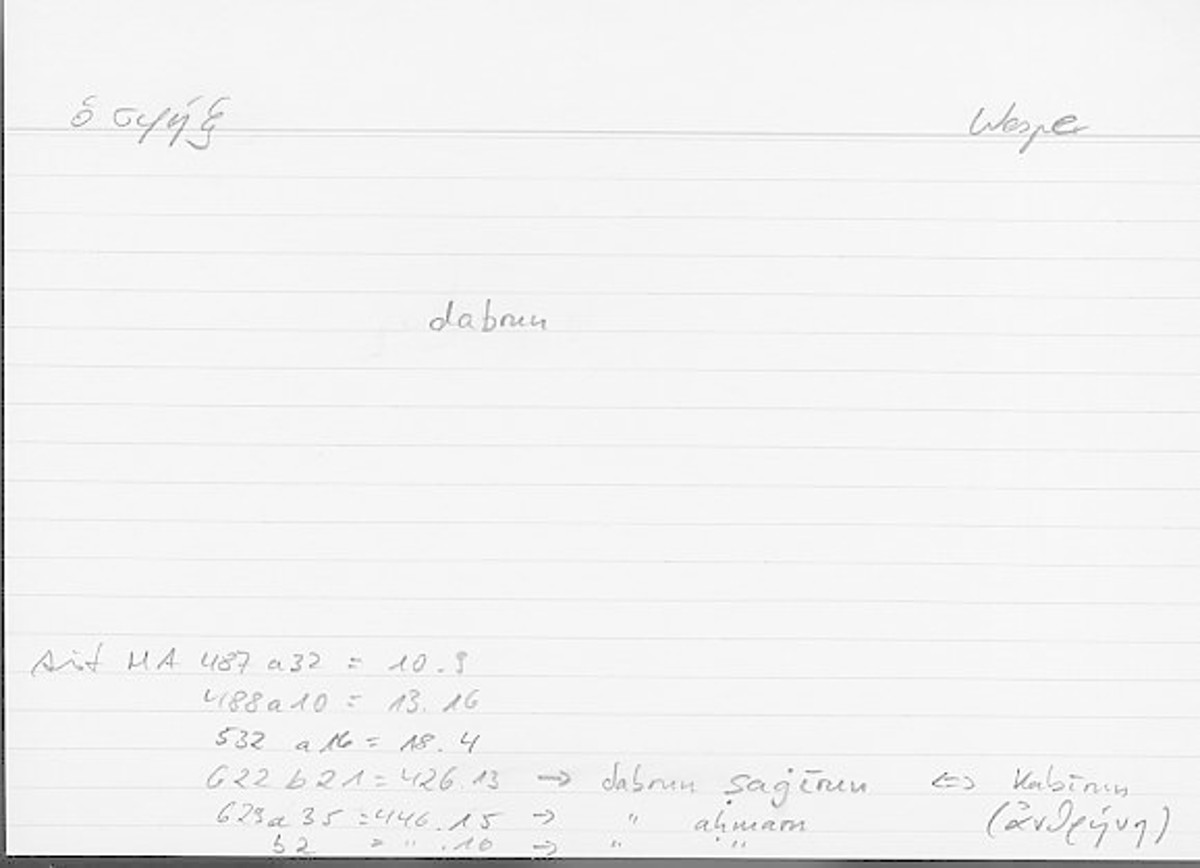 ὁ σφήξ Wespe
dabrun
Arist HA 487 a 32 = 10.9
488 a 10 = 13.16
532 a 16 = 18.4
622 b 21 = 426.13 → dabrun ṣaġīrun ⇔ kabīrun
629 a 35 = 446.15 → " aḥmaru (ἀνθρήνη)
b 2 = " .16 → " "